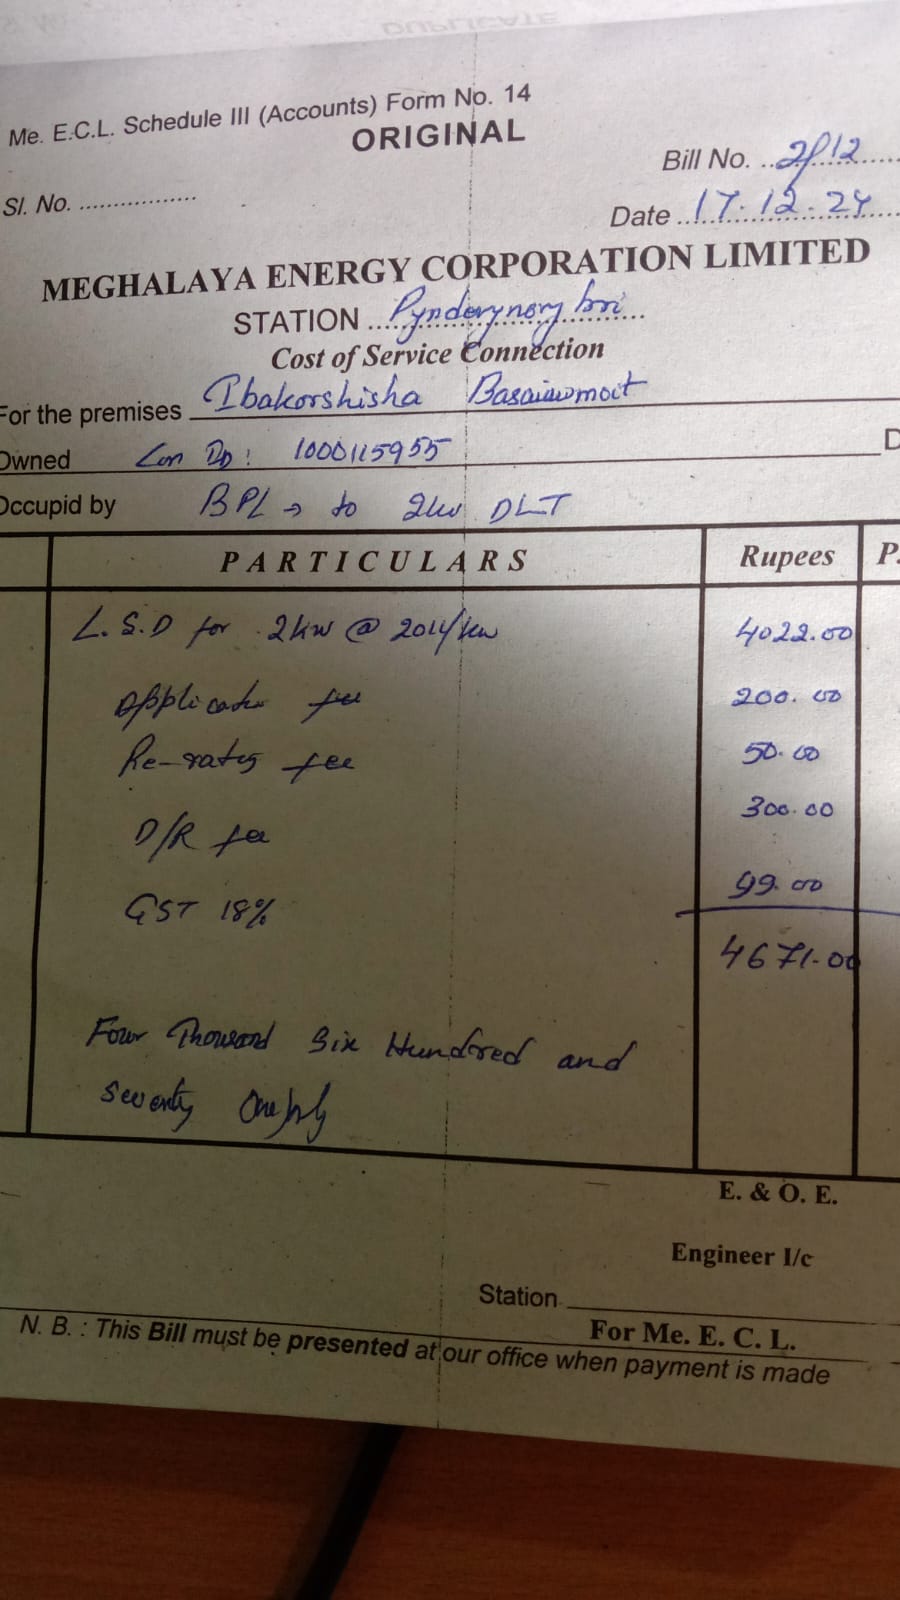 DUPLICATE
Me. E.C.L. Schedule III (Accounts) Form No. 14
ORIGINAL
Bill No. ..2812.....
Sl. No. ..................
Date ..17.12.24....
MEGHALAYA ENERGY CORPORATION LIMITED
STATION
Cost of Service Connection
For the premises Ibakorshisha Basaiawmoit
Owned Con ID: 1000115955 D
Occupid by BPL → to 2kw DLT
PARTICULARS Rupees P.
L.S.D for 2kw @ 2011/kw 4022.00
Application fee 200.00
Re-rating fee 50.00
D/R fee 300.00
GST 18% 99.00
4671.00
Four Thousand Six Hundred and
Seventy One
E. & O. E.
Engineer I/c
Station
For Me. E. C. L.
N. B. : This Bill must be presented at our office when payment is made